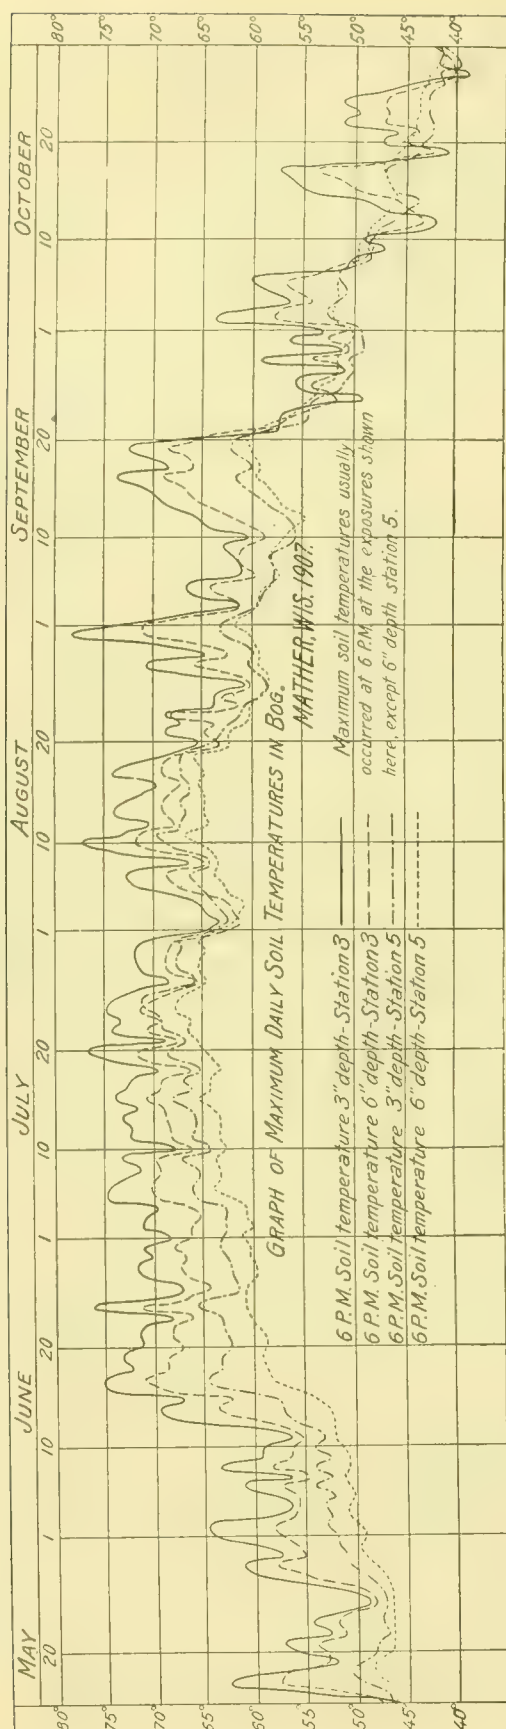 MAY JUNE JULY AUGUST SEPTEMBER OCTOBER
20 1 10 20 1 10 20 1 10 20 1 10 20 1 10 20
80° 80°
75° 75°
70° 70°
65° 65°
60° 60°
55° 55°
50° 50°
45° 45°
40° 40°
GRAPH OF MAXIMUM DAILY SOIL TEMPERATURES IN BOG.
MATHER, WIS. 1907.
6 P.M. Soil temperature 3" depth-Station 3
6 P.M. Soil temperature 6" depth-Station 3
6 P.M. Soil temperature 3" depth-Station 5
6 P.M. Soil temperature 6" depth-Station 5
Maximum soil temperatures usually
occurred at 6 P.M. at the exposures shown
here, except 6" depth station 5.